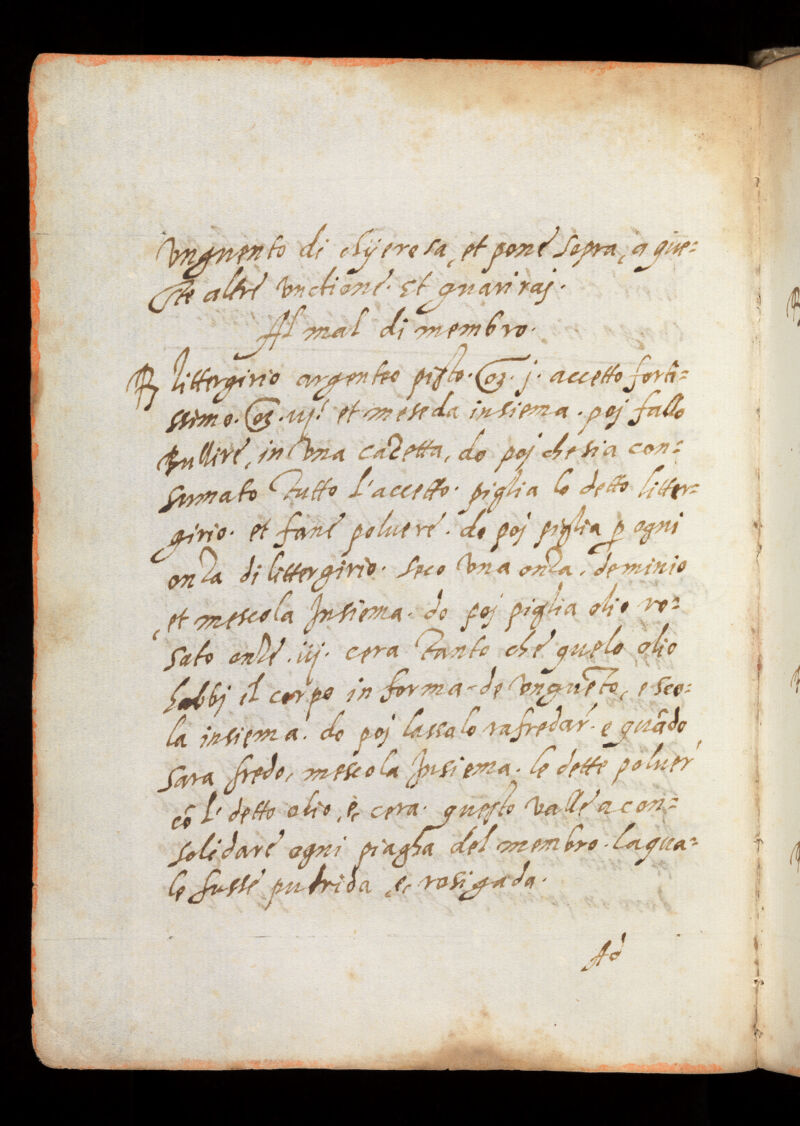 Unguento di chijeresa, et pone sopra, a que=
ste altre unctione. Et guariraj.
Al mal di membro.
℞ littergirio argenteo pisto. oz. j. accetto forti=
ssimo. oz. iij. et meseda insiema. poj fallo
Bullire, in una cazetta, do poj che sia con=
sumato tutto l'accetto. piglia lo detto litter=
girio. et fane polvere. do poj piglia ꝑ ogni
onza di littergirio. seco una onza, de minio
, et mescola Insiema. do poj piglia olio ro=
sato onze .iij. cera tanto che quelo olio
habbj il corpo in forma de unguēto, e sco=
la insiema. do poj lassalo rafredar. e quādo
sara fredo, mescola Insiema. le dette polver
cō l' detto olio, e, cera. questo valle a con=
solidare ogni piagha del membro. laqua=
le fusse putrida e, rosigada.
Ad